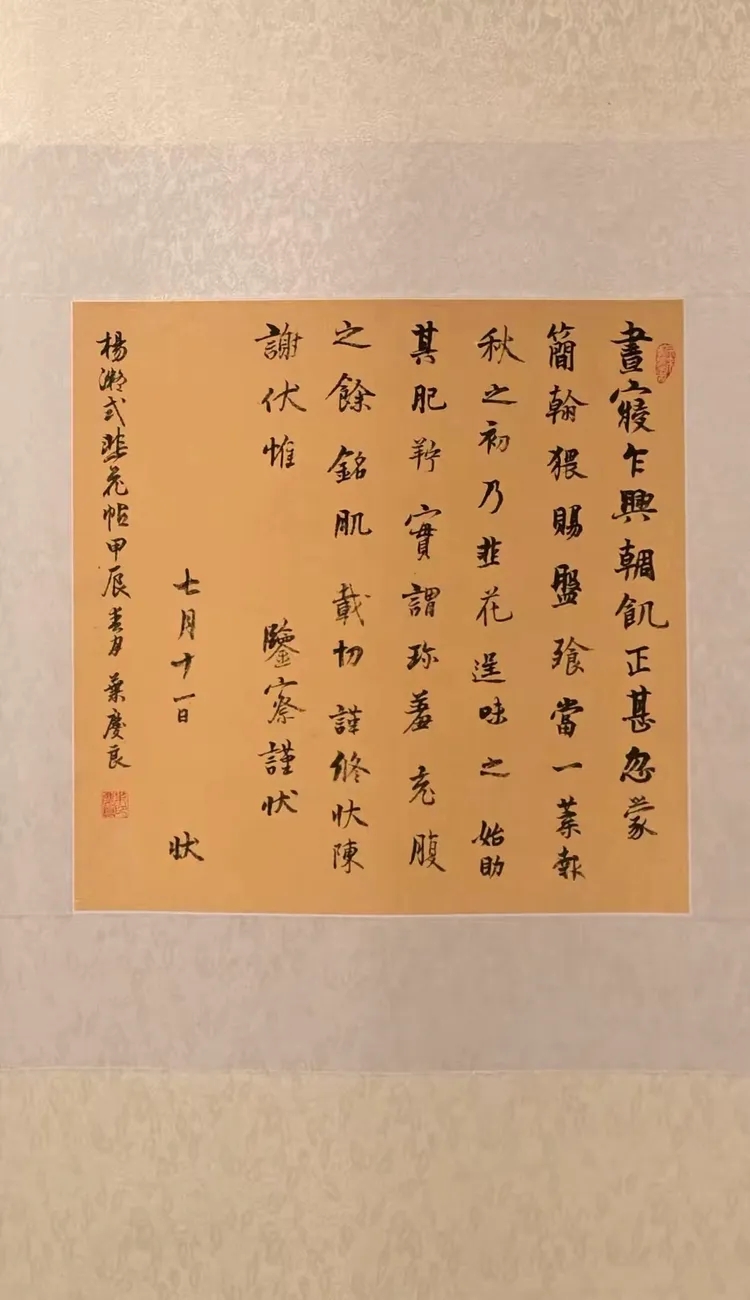 晝寢乍興朝飢正甚忽蒙
簡翰猥賜盤飧當一葉報
秋之初乃韭花逞味之始助
其肥羜實謂珍羞充腹
之餘銘肌載切謹修狀陳
謝伏惟鑒察謹狀
七月十一日狀
楊凝式韭花帖甲辰春月葉慶良